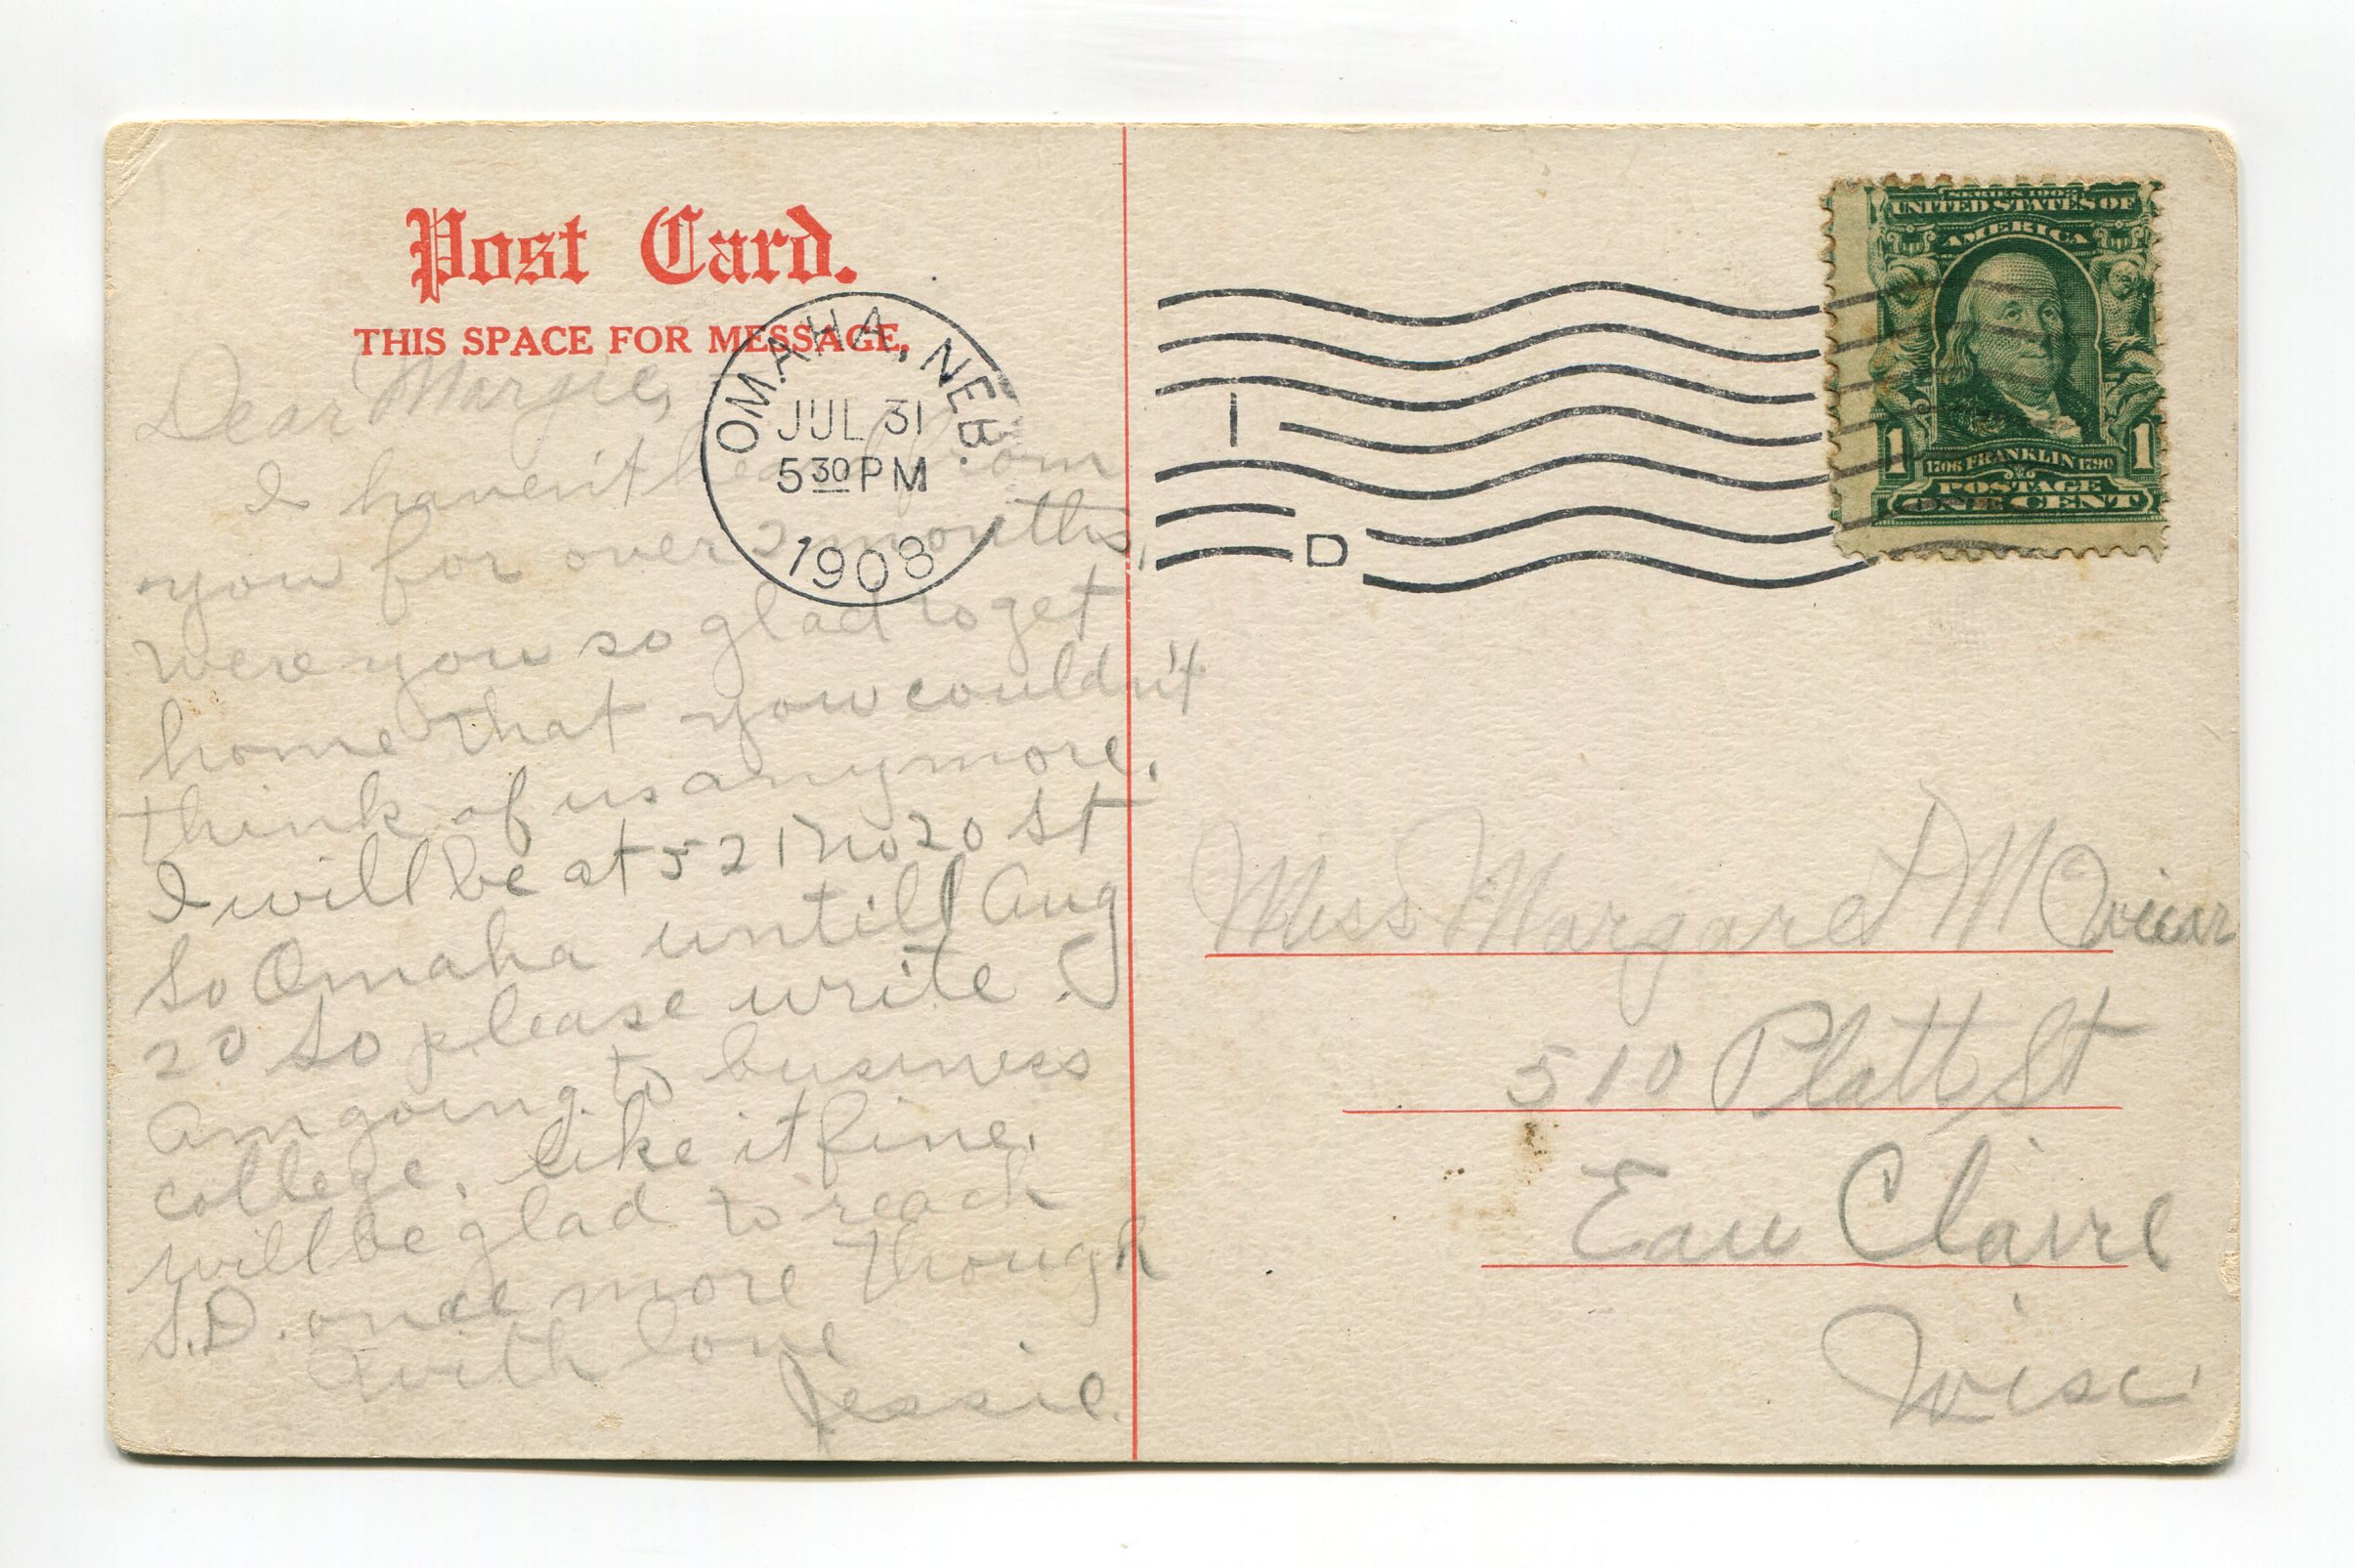 Post Card.
THIS SPACE FOR MESSAGE.
Dear Margie,
I haven't heard from
you for over 2 months,
were you so glad to get
home that you couldn't
think of us anymore.
I will be at 521 No 20 St
So Omaha untill Aug
20 so please write. I
Am going to business
college, like it fine.
will be glad to reach
S.D. once more though
with love
Jessie.
OMAHA, NEB.
JUL 31
5 30 PM
1908
1
D
SERIES 1902
UNITED STATES OF
AMERICA
1 1
1706 FRANKLIN 1790
POSTAGE
ONE CENT
Miss Margaret
510 Platt St
Eau Claire
Wisc.